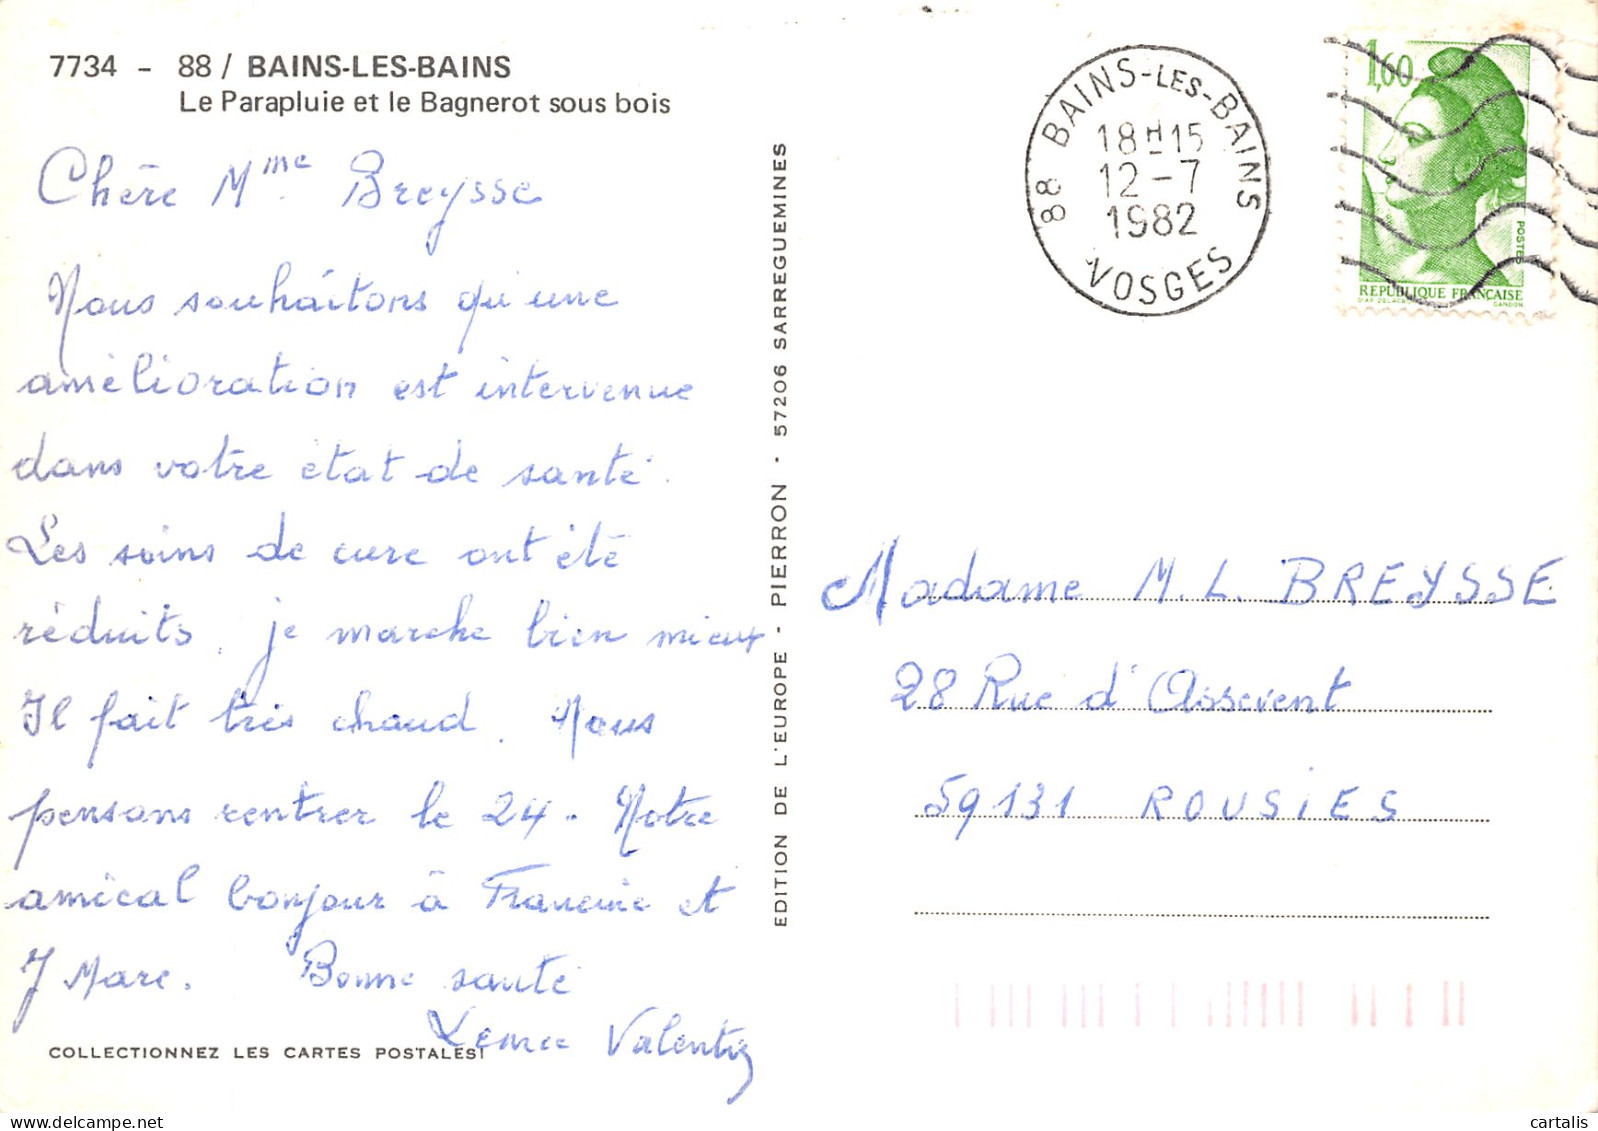 7734 - 88 / BAINS-LES-BAINS
Le Parapluie et le Bagnerot sous bois
Chère Mme Breysse
Nous souhaitons qu'une
amélioration est intervenue
dans votre état de santé.
Les soins de cure ont été
réduits. je marche bien mieux
Il fait très chaud. Nous
pensons rentrer le 24. Notre
amical bonjour à Francine et
J Marc. Bonne santé
Valentin
COLLECTIONNEZ LES CARTES POSTALES!
EDITION DE L'EUROPE - PIERRON - 57206 SARREGUEMINES
88 BAINS-LES-BAINS
18H15
12-7
1982
VOSGES
1,60
POSTES
REPUBLIQUE FRANÇAISE
D'AP. DELACROIX GANDON
Madame M. L. BREYSSE
28 Rue d'Assevent
59131 ROUSIES
cartalis